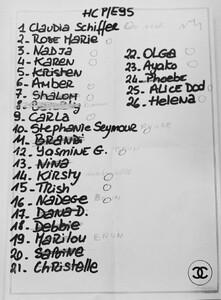 HCP/E95
1 Claudia Schiffer
2- ROSE MARIE
3- NADJA
4- KAREN
5- Kristen
6- AMBER
7- SHALOM
8-
9- CARLA
10- Stephanie Seymour
11- BRANDI
12- YASMINE G.
13- NINA
14- KIRSTY
15- TRISH
16- NADEGE
17- DANA D.
18- Debbie
19- MARILOU
20- SABINE
21- CHRISTELLE
22- OLGA
23- Ayako
24- Phoebe
25- ALICE Dod
26- Helena